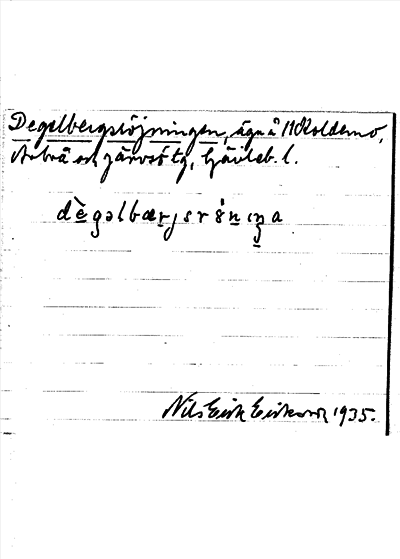 Degelbergsröjningen, ägn å Koldemo,
Arbrå sn, Järvsö tg, Gävleb. l.
dègəlbærjsrö̀nıŋa
Nils Erik Eriksson 1935.